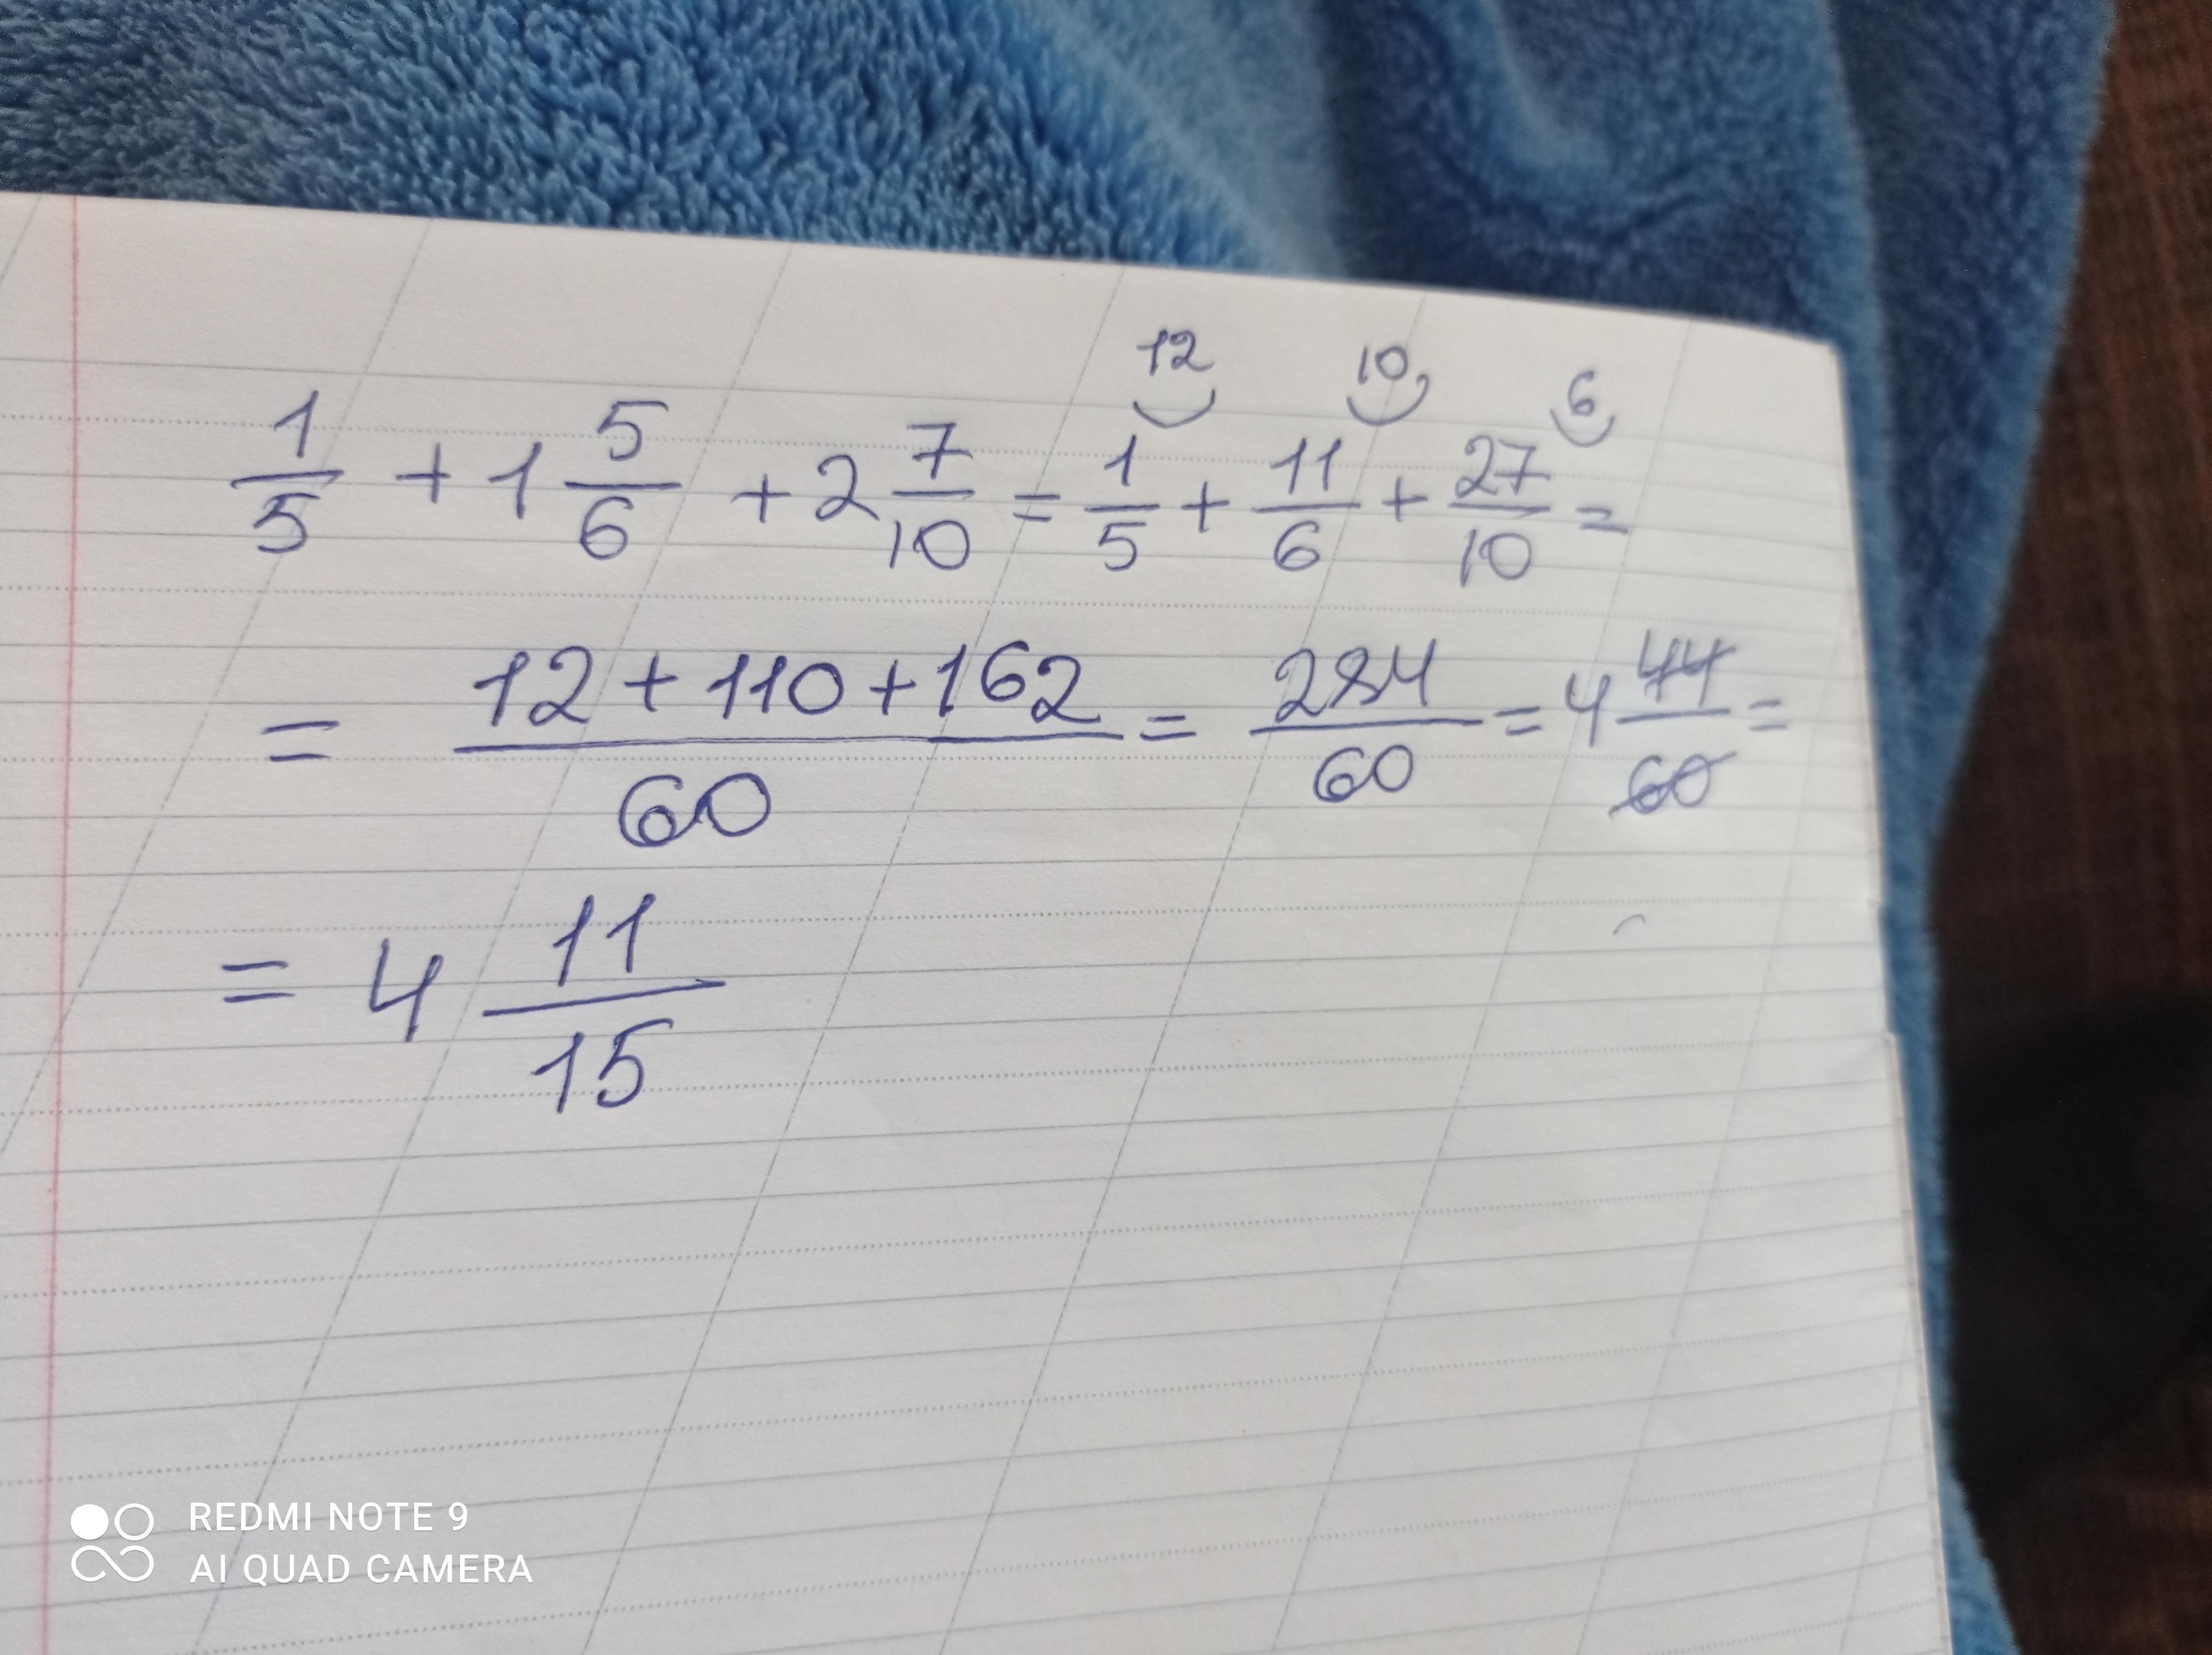 12 10 6
1/5 + 1 5/6 + 2 7/10 = 1/5 + 11/6 + 27/10 =
= (12 + 110 + 162)/60 = 284/60 = 4 44/60 =
= 4 11/15
REDMI NOTE 9
AI QUAD CAMERA